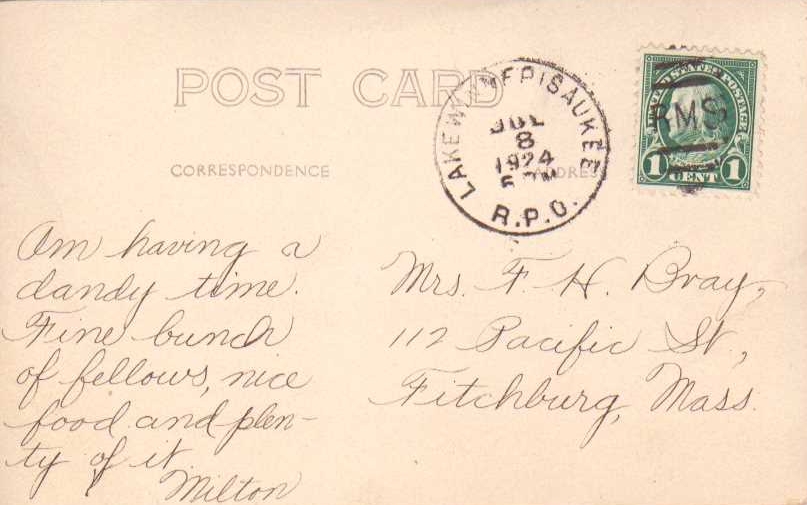 POST CARD
CORRESPONDENCE
ADDRESS
LAKE WINNEPISAUKEE
JUL
8
1924
R.P.O.
UNITED STATES POSTAGE
RMS
1 CENT 1
Am having a
dandy time.
Fine bunch
of fellows, nice
food and plen-
ty of it
Milton
Mrs. F. H. Bray,
112 Pacific St,
Fitchburg, Mass.